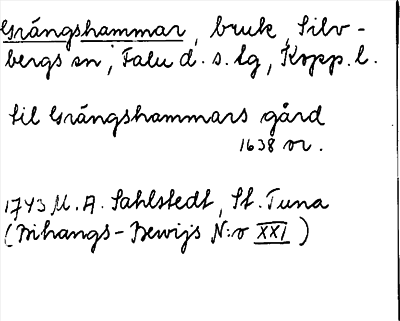 Grängshammar, bruk, Silv-
bergs sn, Falu d. s. lg, Kopp. l.
til Grängshammars gård
1638 or.
1743 M. A. Sahlstedt, St. Tuna
(Bihangs-Bewijs N:o XXI)